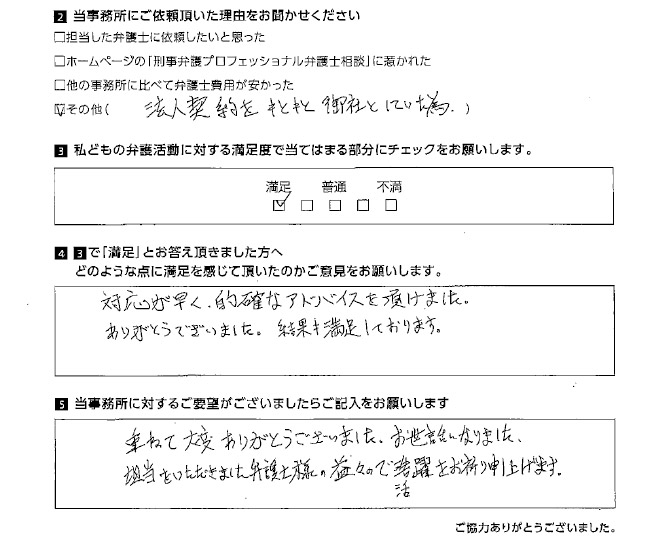 2 当事務所にご依頼頂いた理由をお聞かせください
□担当した弁護士に依頼したいと思った
□ホームページの「刑事弁護プロフェッショナル弁護士相談」に惹かれた
□他の事務所に比べて弁護士費用が安かった
☑その他( 法人契約を もともと 御社としていた為. )
3 私どもの弁護活動に対する満足度で当てはまる部分にチェックをお願いします。
満足 普通 不満
☑ □ □ □ □
4 3で「満足」とお答え頂きました方へ
どのような点に満足を感じて頂いたのかご意見をお願いします。
対応が早く、的確なアドバイスを頂けました。
ありがとうございました。結果も満足しております。
5 当事務所に対するご要望がございましたらご記入をお願いします
重ねて大変ありがとうございました、お世話になりました、
担当をいただきました弁護士様の益々のご 躍をお祈り申上げます。
活
ご協力ありがとうございました。